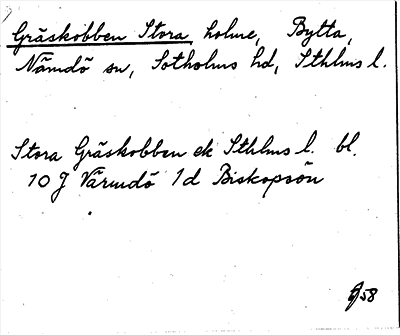 Gräskobben Stora, holme, Bytta,
Nämdö sn, Sotholms hd, Sthlms l.
Stora Gräskobben ek Sthlms l. bl.
10 J Värmdö 1d Biskopsön
58